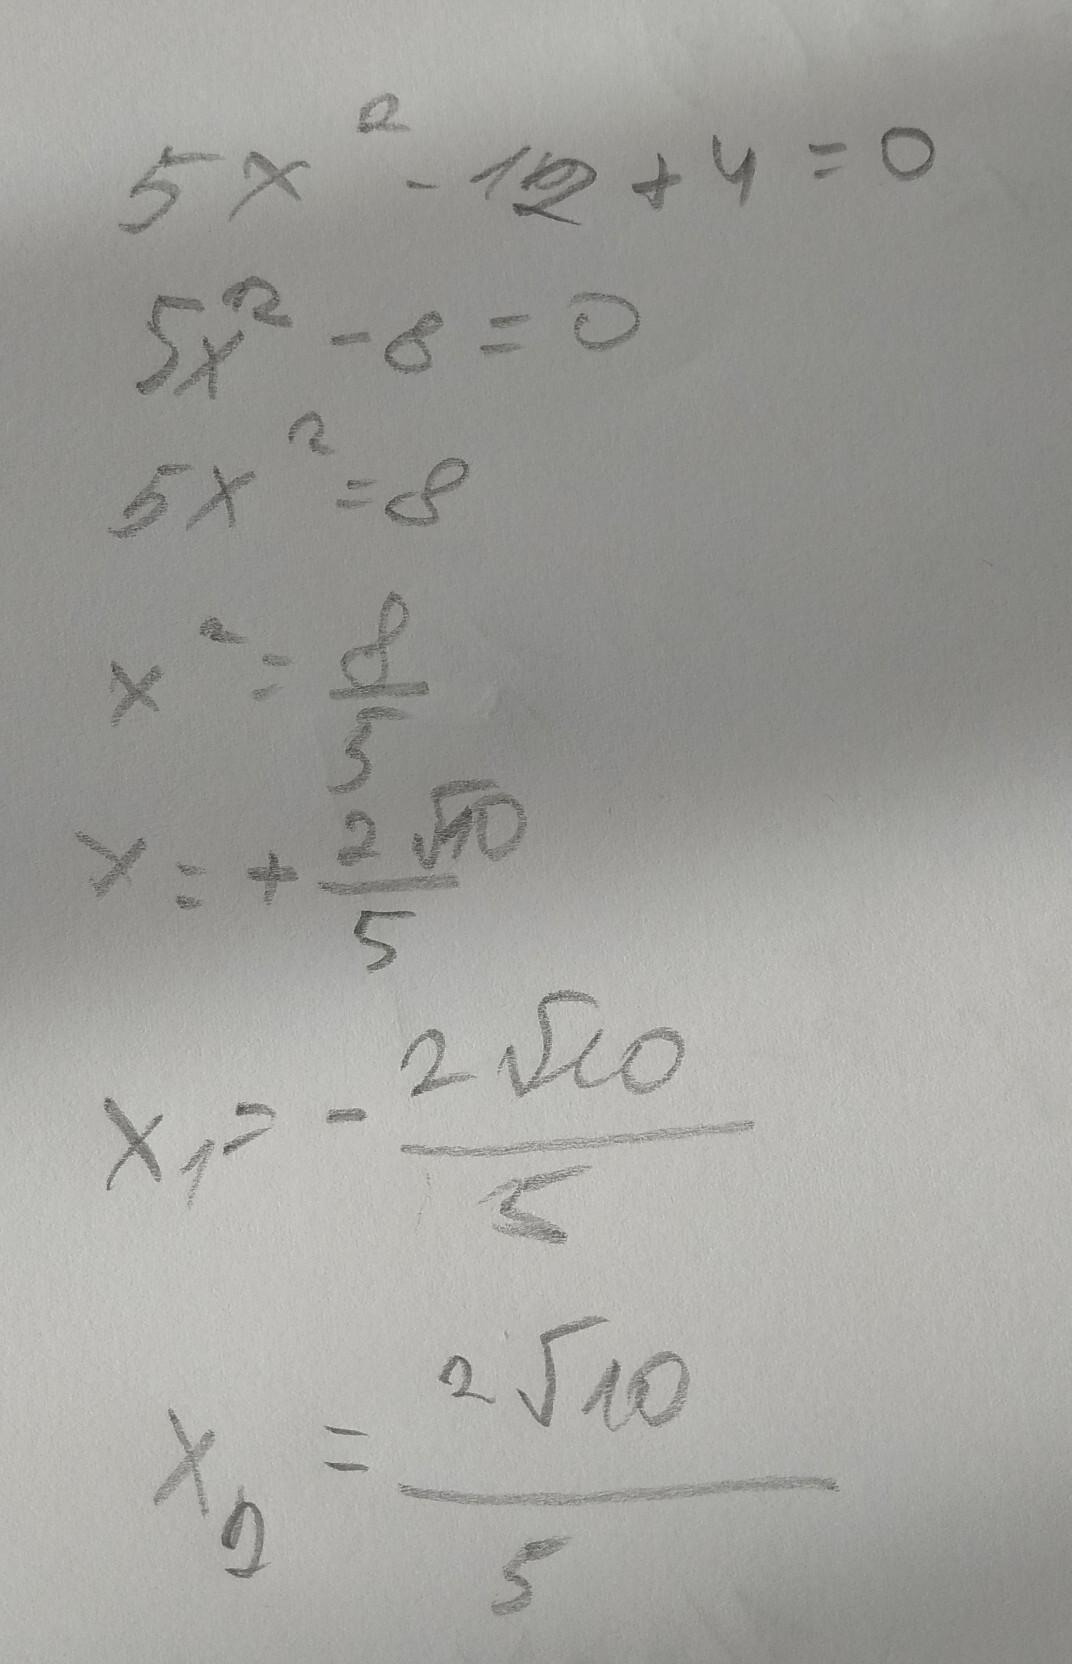 5x² - 12 + 4 = 0
5x² - 8 = 0
5x² = 8
x² = 8/5
x = + 2√10/5
x₁ = - 2√10/5
x₂ = 2√10/5